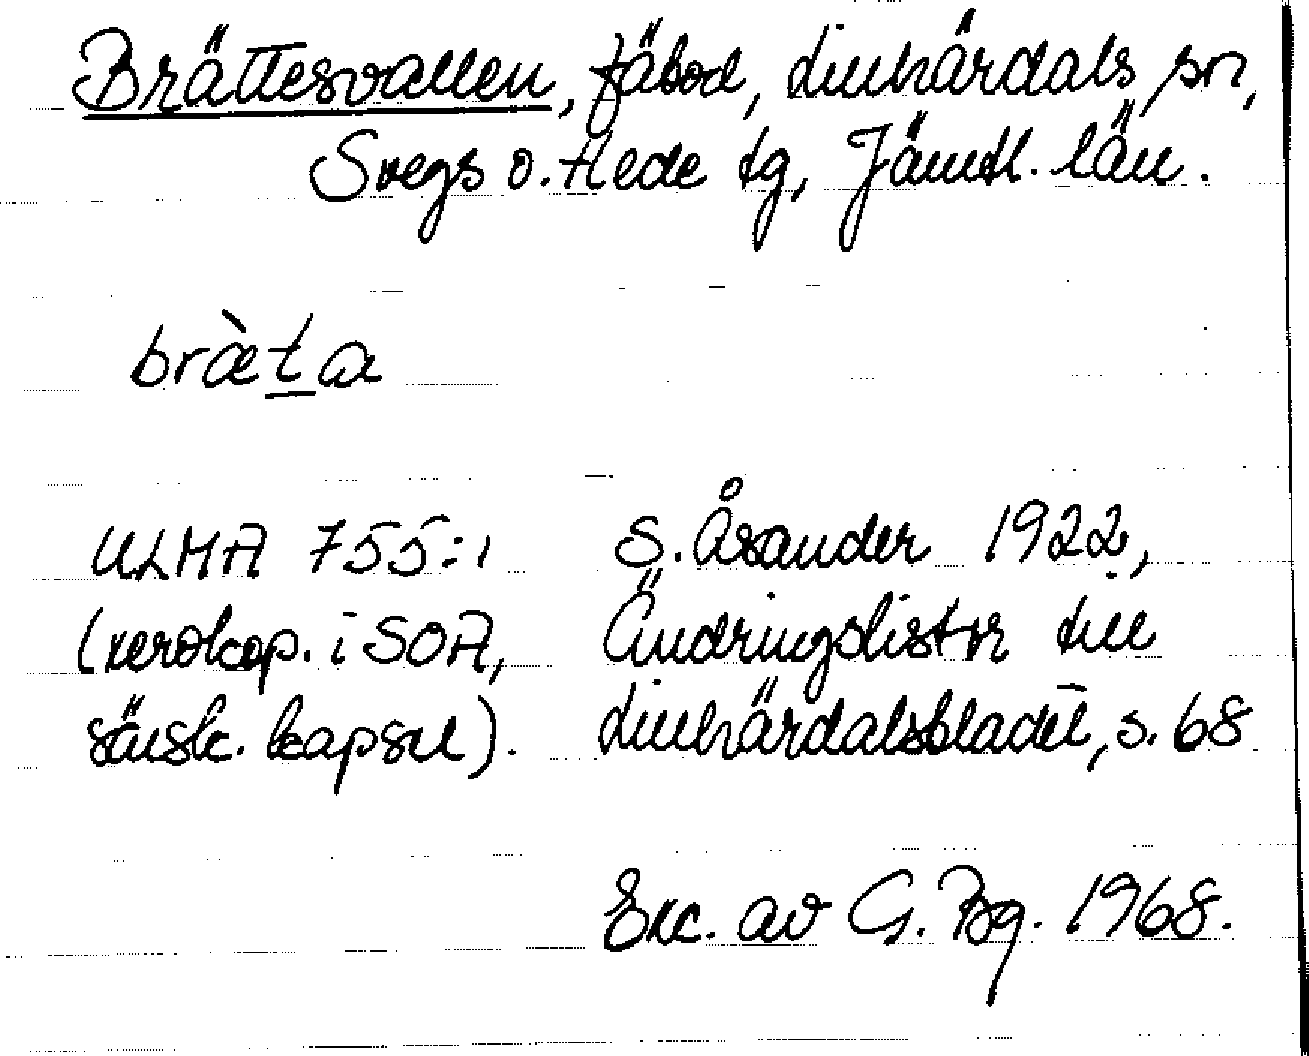 Brättesvallen, fäbod, Linhärdals sn,
Svegs o. Hede tg, Jämtl. län.
bræ̀ta
ULMA 755:1 S. Åsander 1922,
(xerokop. i SOA, Ändringslistor till
särsk. kapsel). Linhärdalsbladet, s. 68
Exc. av G. Bg. 1968.